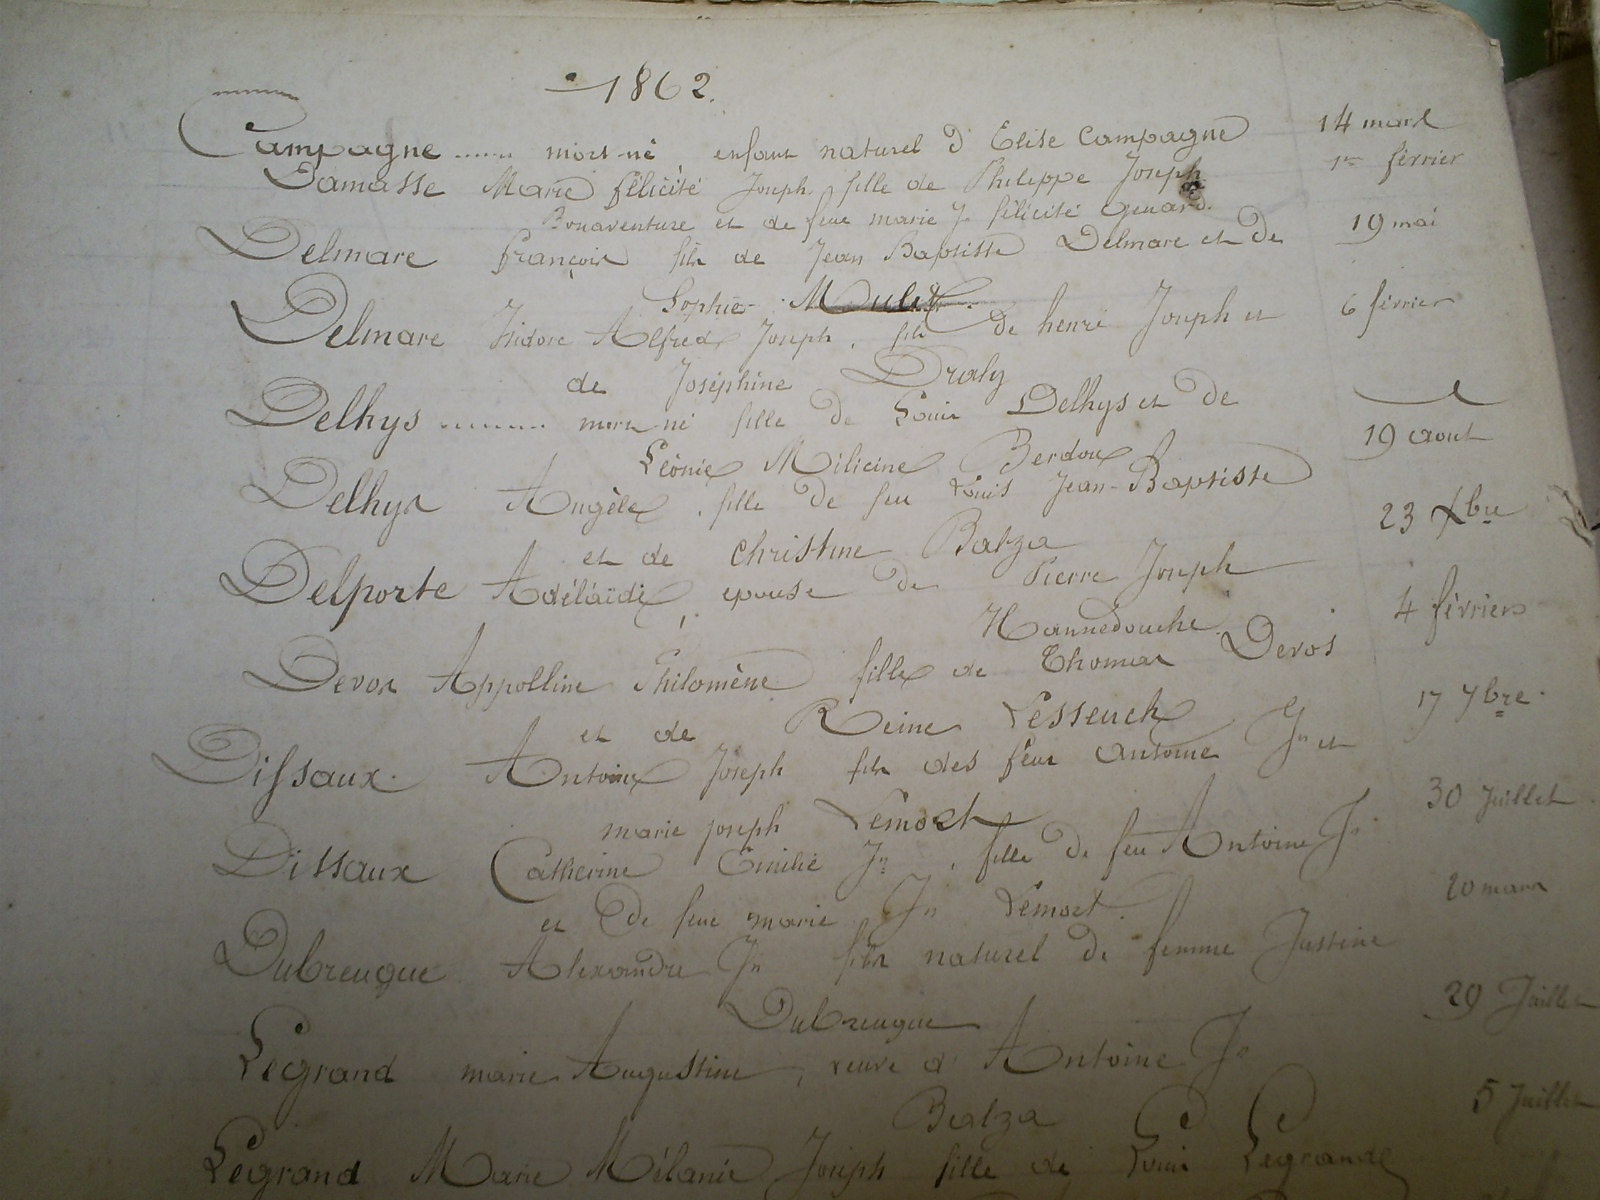 1862.
Campagne ...... mort-né, enfant naturel d'Elise Campagne 14 mars
Damasse Marie félicité Joseph, fille de Philippe Joseph 1er février
Bonaventure et de feue marie Je félicité Genard.
Delmare françois fils de Jean Baptiste Delmare et de 19 mai
Sophie
Delmare Isidore Alfred Joseph, fils de henri Joseph et 6 février
de Joséphine Draly
Delhys ........ mort-né fille de Louis Delhys et de
Léonie Milicine Berdoux
Delhys Angèle, fille de feu Louis Jean-Baptiste 19 aout
et de Christine Balza
Delporte Adélaïde, épouse de Pierre Joseph 23 Xbre
Hannedouche.
Devos Appolline Philomène fille de Thomas Devos 4 février
et de Reine Lesseuck
Dissaux. Antoine Joseph fils des feus Antoine Jh et 17 7bre.
marie joseph Lemort
Dissaux Catherine Emilie Jh, fille de feu Antoine Jh 30 Juillet
et de feue marie Jh Lemort.
Dubreuque Alexandre Jh fils naturel de femme Justine 20 mars
Dubreuque
Legrand marie Augustine, veuve d'Antoine Jh 29 Juillet
Balza
Legrand Marie Mélanie Joseph fille de Louis Legrand 5 Juillet